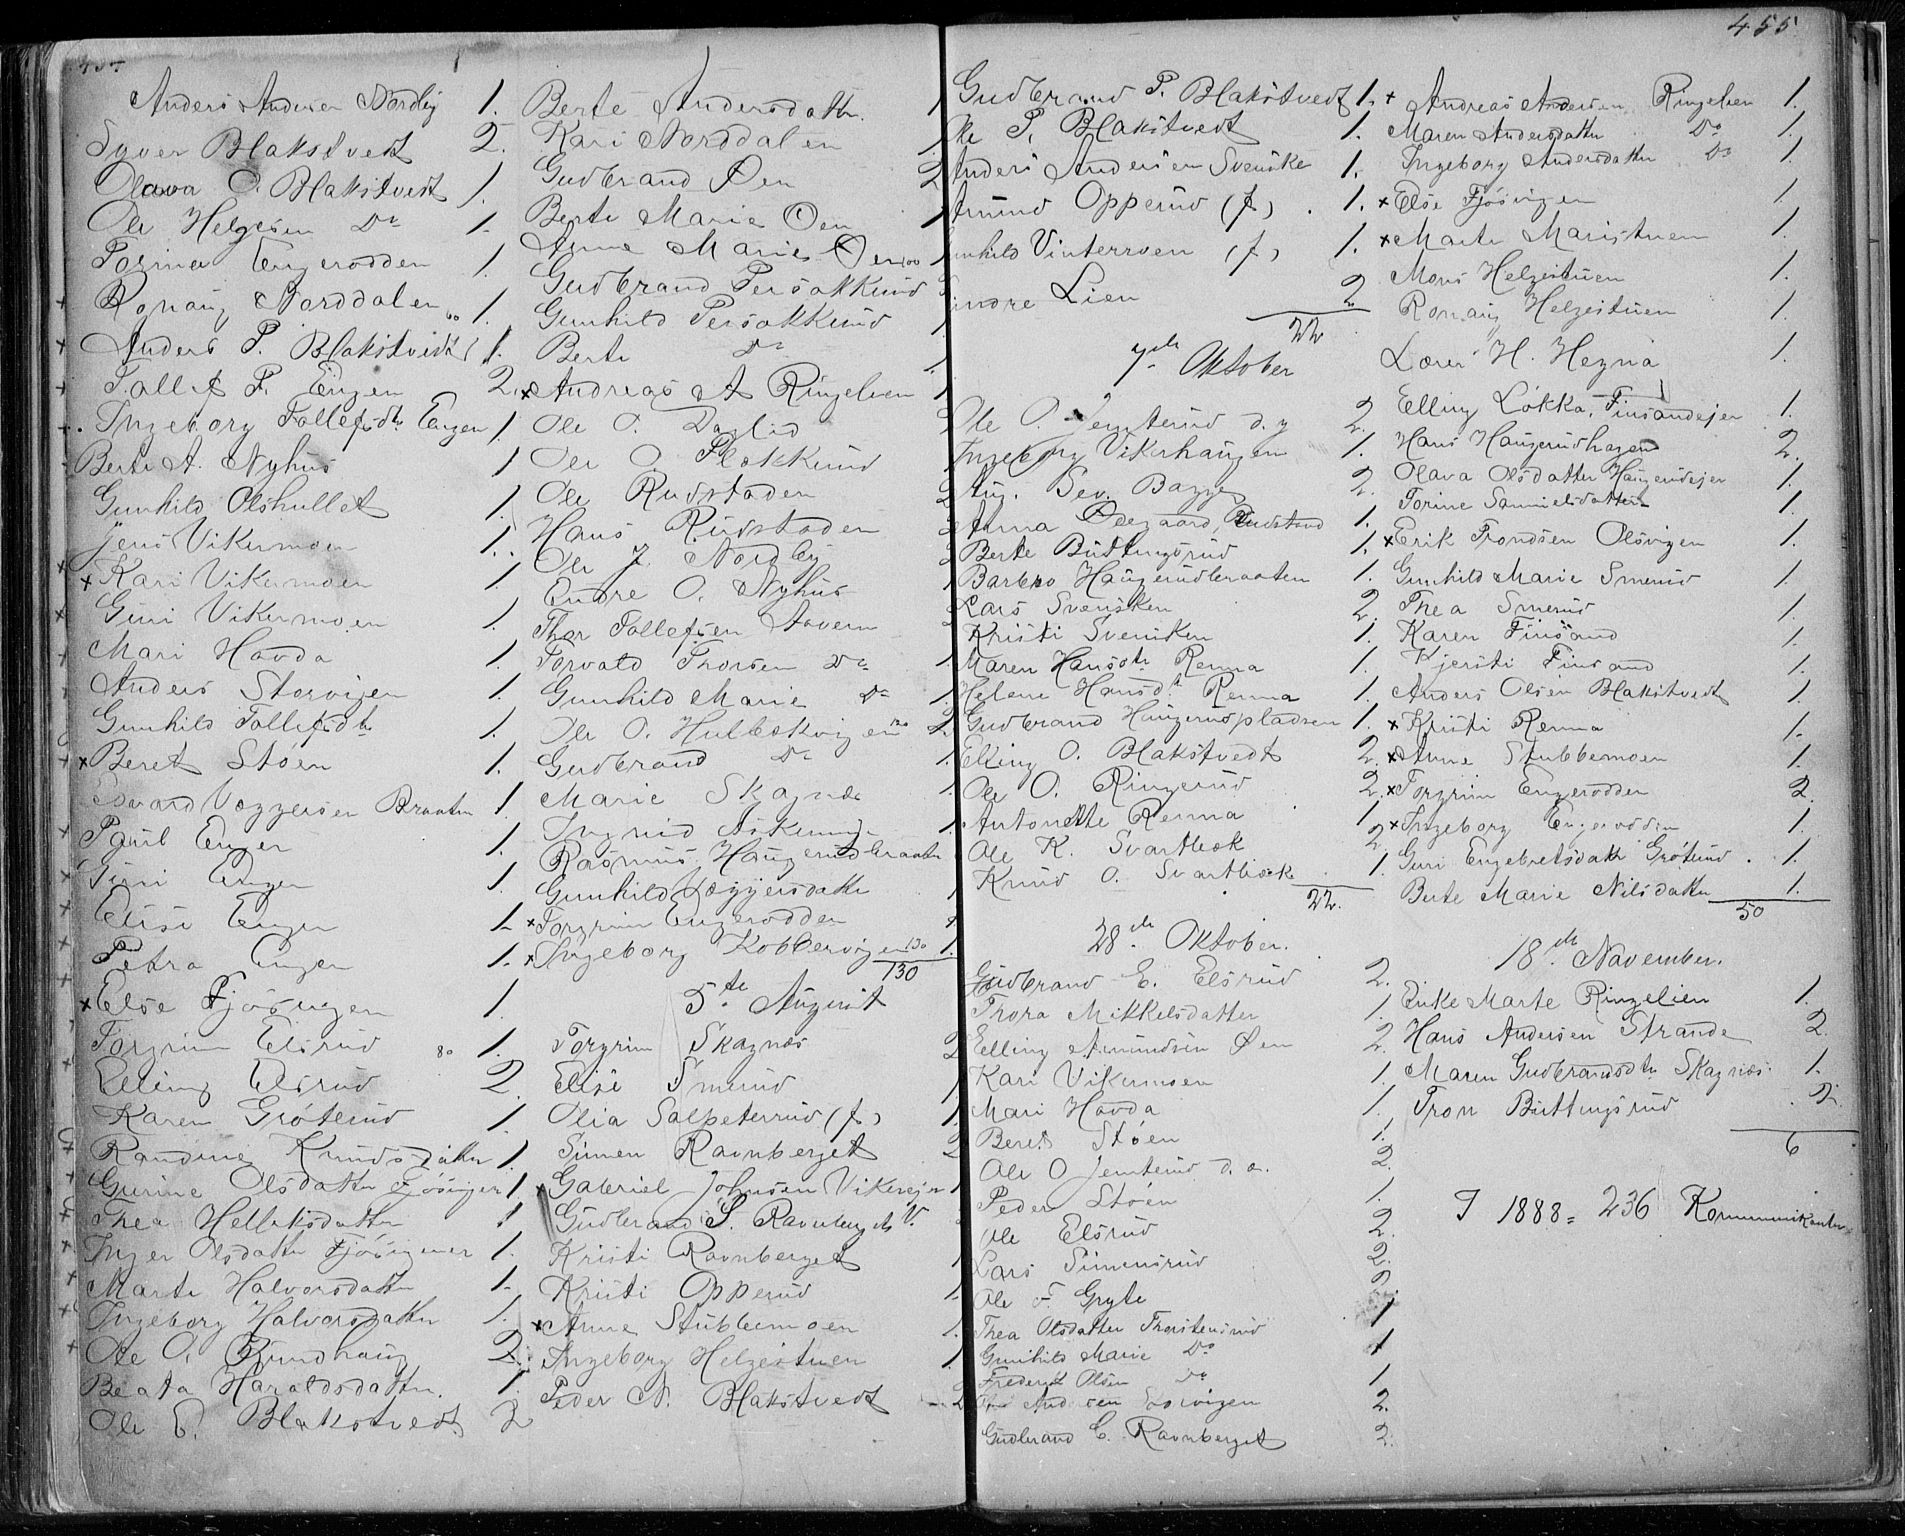 455
Anders Andersen Nordby 1.
Syver Blakstvedt 2.
Olava O. Blakstvedt 1.
Ole Helgesen Do 1.
Engerodden 1.
Ronaug Norddalen 1.
Anders P. Blakstvedt 1.
Tallef P. Engen 2.
Ingeborg Tallefsdtr Engen 1
Berte A. Nyhus 1
Gunhild Olshullet 1.
Jens Vikermoen 1.
× Kari Vikermoen 1.
Guri Vikermoen 1.
Mari Havda 1.
Anders Storvigen 1.
Gunhild Tallefsdtr 1.
× Beret Støen 1.
Edvard Braaten 1
Paul Engen 1.
Guri Engen 1.
Elise Engen 1.
Petra Engen 1.
× Else Fjøsvigen 1.
Torgrim Elsrud 80 1.
Elling Elsrud 2.
Karen Grøterud 1.
Randine Knudsdatter 1.
Gurine Olsdatter Fjøsvigen 1
Thea Helleksdatter 1
Inger Olsdatter 1.
Marte Halvorsdatter 1.
Ingeborg Halvorsdatter 1.
Ole O. 2.
Beata Haraldsdatter. 1.
Ole E. Blakstvedt 2
Berte Andersdatter 1
Kari Norddalen 1.
Gudbrand Øen 2
Berte Marie Øen 1
Anne Marie Øen 1
Gudbrand Persokkrud
Gunhild Persokkrud 1
Berte Do 1.
× Andreas A Ringelien 1
Ole O. Daglid
Ole O. Flokkrud
Ole Rudstaden 2
Hans Rudstaden
Ole J. Nordby
Endre O. Nyhus 1
Thor Tallefsen
Torvald Thorsen Do 1
Gunhild Marie Do 1.
Ole O. Hulbakvigen 120 2.
Gudbrand Do 1.
Marie Skagnæs 1.
Ingrid 1.
Rasmus Haugerudbraaten
Gunhild
× Torgrim Engerodden 2
× Ingeborg Kobbervigen 130 1.
130
5te August
Torgrim Skagnæs 2
Elise Smerud 1
Olia Salpeterrud (f) 1.
Simen Ravnberget 2
× Gabriel Johnsen Vikersejer 1
Gudbrand S. Ravnberget
Kristi Ravnberget 1
Kristi Opperud 1.
× Anne Stubbemoen 1.
Ingeborg Helgestuen 1
Peder N. Blakstvedt 2
Gudbrand P. Blakstvedt 1.
Ole P. Blakstvedt 1.
Anders Andersen Svenske 1.
Amund Opperud (f) 1.
Gunhild Vinterroen (f) 1.
Sindre Lien 2
22
7de Oktober
Ole O. Jemterud d. y 2.
Ingeborg Vikerhaugen 1.
Aug. Sev. Bagge 2
Anna Ødegaard, Rudstad 1.
Berte Buttingsrud 1.
Barbro Haugerudbraaten 1.
Lars Svensken 2.
Kristi Svensken 1.
Maren Hansdtr Renna 1.
Helene Hansdtr Renna 1.
Gudbrand Haugerudpladsen 1.
Elling O. Blakstvedt 2.
Ole O. Ringerud 2.
Antonette Renna 1.
Ole K. Svartbæk 2
Knud O. Svartbæk 1.
22.
28de Oktober.
Gudbrand E. Elsrud 2.
Thora Mikkelsdatter 1.
Elling Amundsen Øen 2.
Kari Vikermoen 1.
Mari Havda 1.
Beret Støen 1.
Ole O Jemterud d. æ. 2.
Peder Støen 1.
Ole Elsrud 2.
Lars Simensrud 2.
Ole Gryte 2
Thea Olsdatter Thorstensrud 1
Gunhild Marie Do 1
Frederik Olsen Do 1
Andersen 2.
Gudbrand E. Ravnberget 2.
× Andreas Andersen Ringelien 1.
Maren Andersdatter Do 1.
Ingeborg Andersdatter Do 1.
× Else Fjøsvigen 1.
× Marte Maristuen 1.
Mons Helgestuen 1.
Ronaug Helgestuen 1.
Lærer H. Hegna 1.
Elling Løkka, Finsandejer 1.
Hans Haugerudhagen 2.
Olava Olsdatter Haugerudejer 1.
Torine Samuelsdatter 1.
× Erik Trondsen Olsvigen 1.
Gunhild Marie Smerud 1.
Thea Smerud 1.
Karen Finsand 1.
Kjersti Finsand 1.
Anders Olsen Blakstvedt 1.
× Kristi Renna 1.
× Anne Stubbemoen 1.
× Torgrim Engerodden 2.
× Ingeborg Engerodden 1.
Guri Engebretsdatter Grøterud 1.
Berte Marie Nilsdatter 1.
50
18de November.
Enke Marte Ringelien 1.
Hans Andersen Strande 2.
Maren Gudbrandsdtr Skagnæs 1.
Tron Buttingsrud 2.
6
I 1888 = 236 Kommunikanter